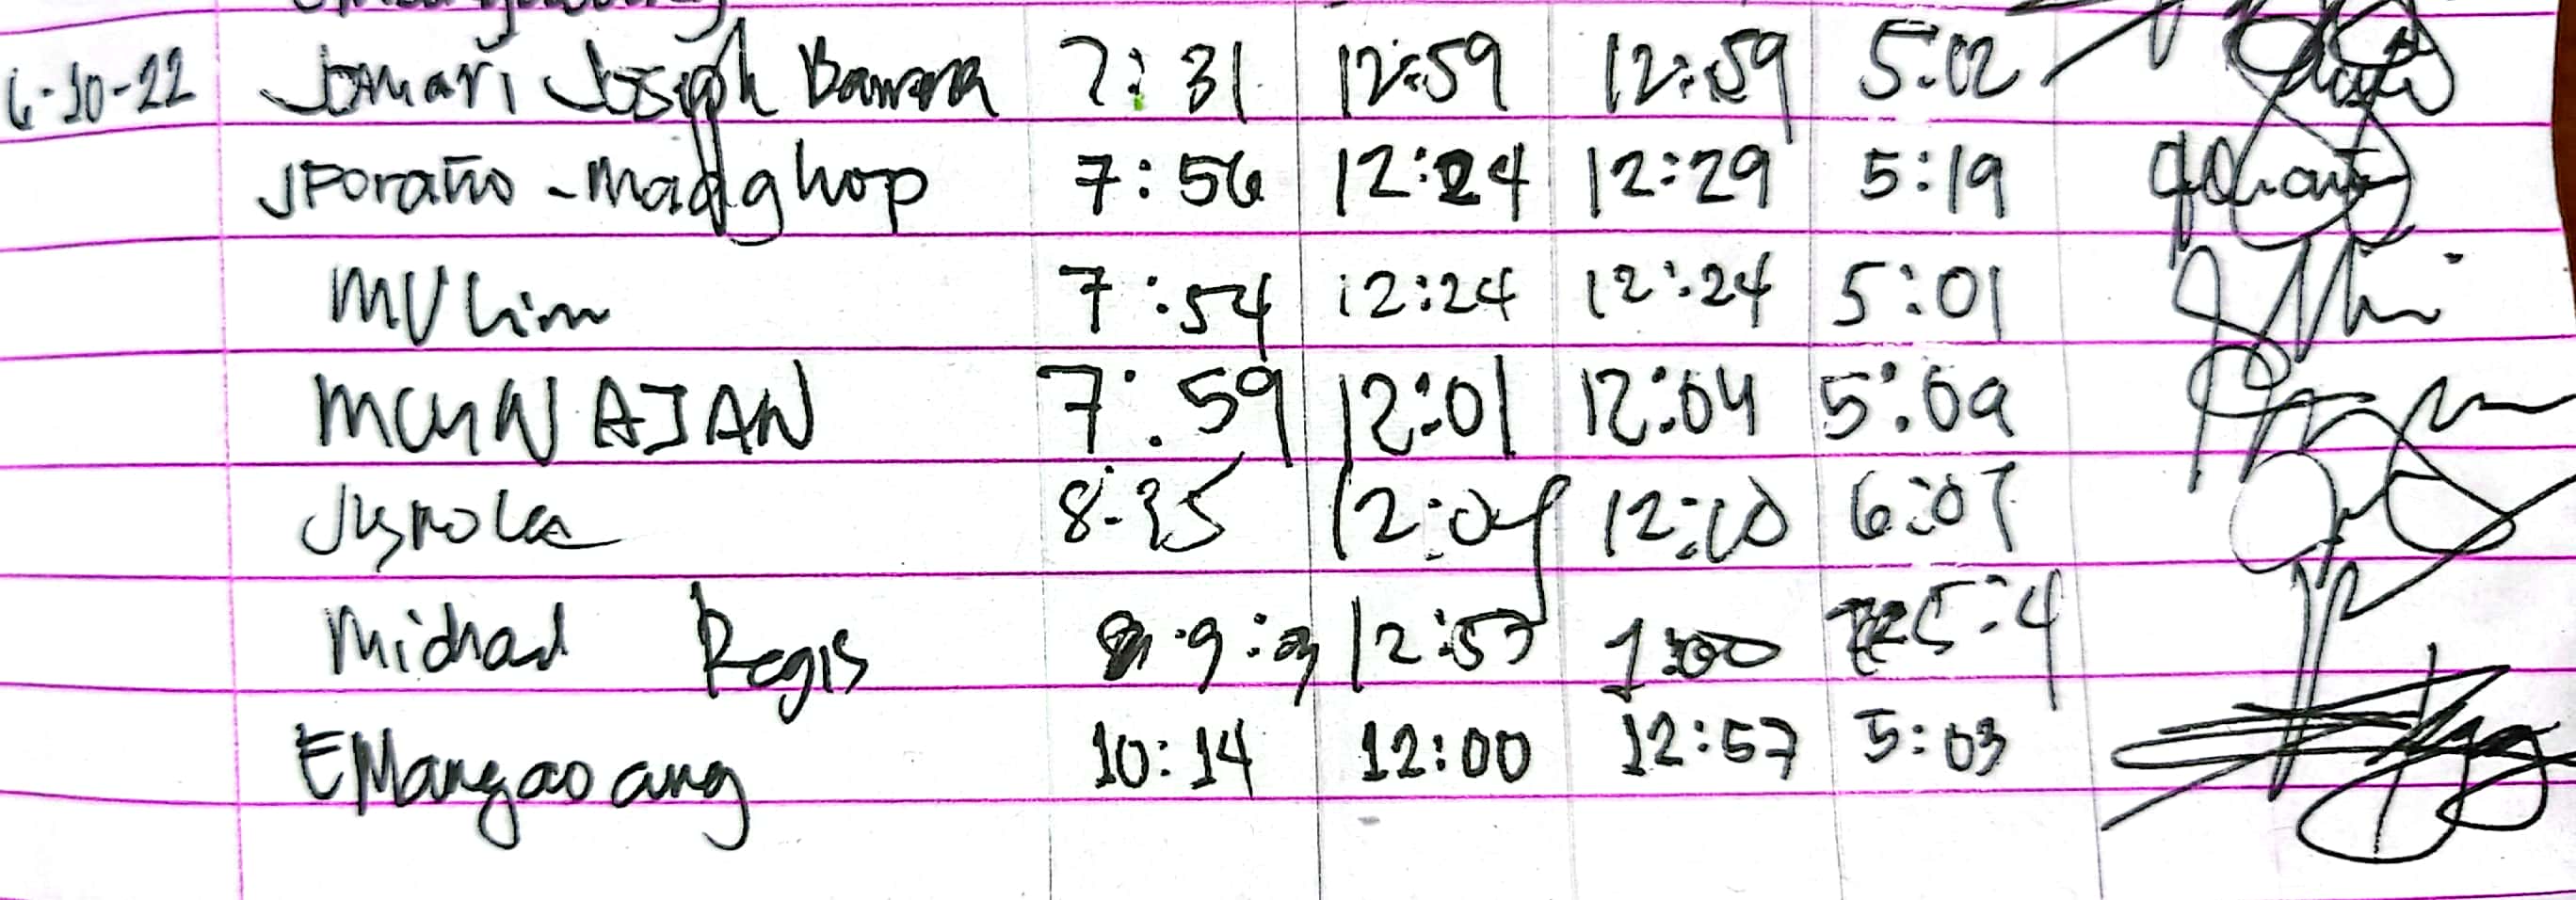 6-10-22 Jomari Joseph 7:31 12:59 12:59 5:02
JPoraño - madghop 7:56 12:24 12:29 5:19
MVLim 7:54 12:24 12:24 5:01
7:59 12:01 12:04 5:09
8:35 12:04 12:10 6:07
Michael Regis 12:57 1:00
EMangaoang 10:14 12:00 12:57 5:03